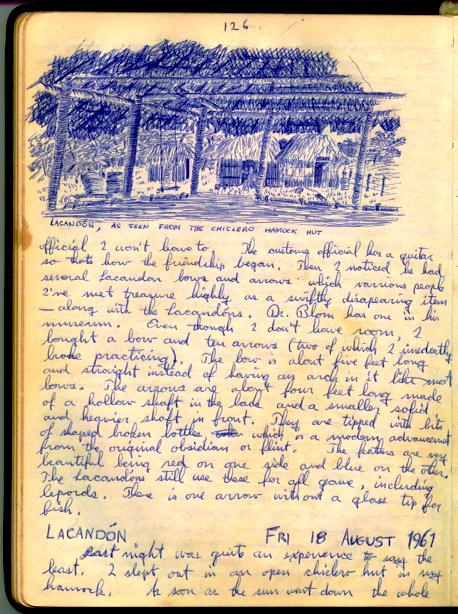 126
LACANDÓN, AS SEEN FROM THE CHICLERO HAMOCK HUT
official I won't have to. The customs official has a guitar
so thats how the friendship began. Then I noticed he had
several Lacandon bows and arrows which varrious people
I've met treasure highly as a swiftly disapearing item
— along with the Lacandóns. Dr. Blom has one in his
museum. Even though I don't have room, I
bought a bow and ten arrows (two of which I imediently
broke practicing). The bow is about five feet long
and straight instead of having an arch in it like most
bows. The arrows are about four feet long made
of a hollow shaft in the back and a smaller sofid
and heavier shaft in front. They are tipped with bits
of shaped broken bottles, which is a modern advancement
from the original obsidian or flint. The feathers are very
beautiful being red on one side and blue on the other.
The Lacandóns still use these for all game, including
lepords. There is one arrow without a glass tip for
fish.
LACANDÓN FRI 18 AUGUST 1961
Last night was quite an experience to say the
least. I slept out in an open chiclero hut in my
hamock. As soon as the sun went down the whole